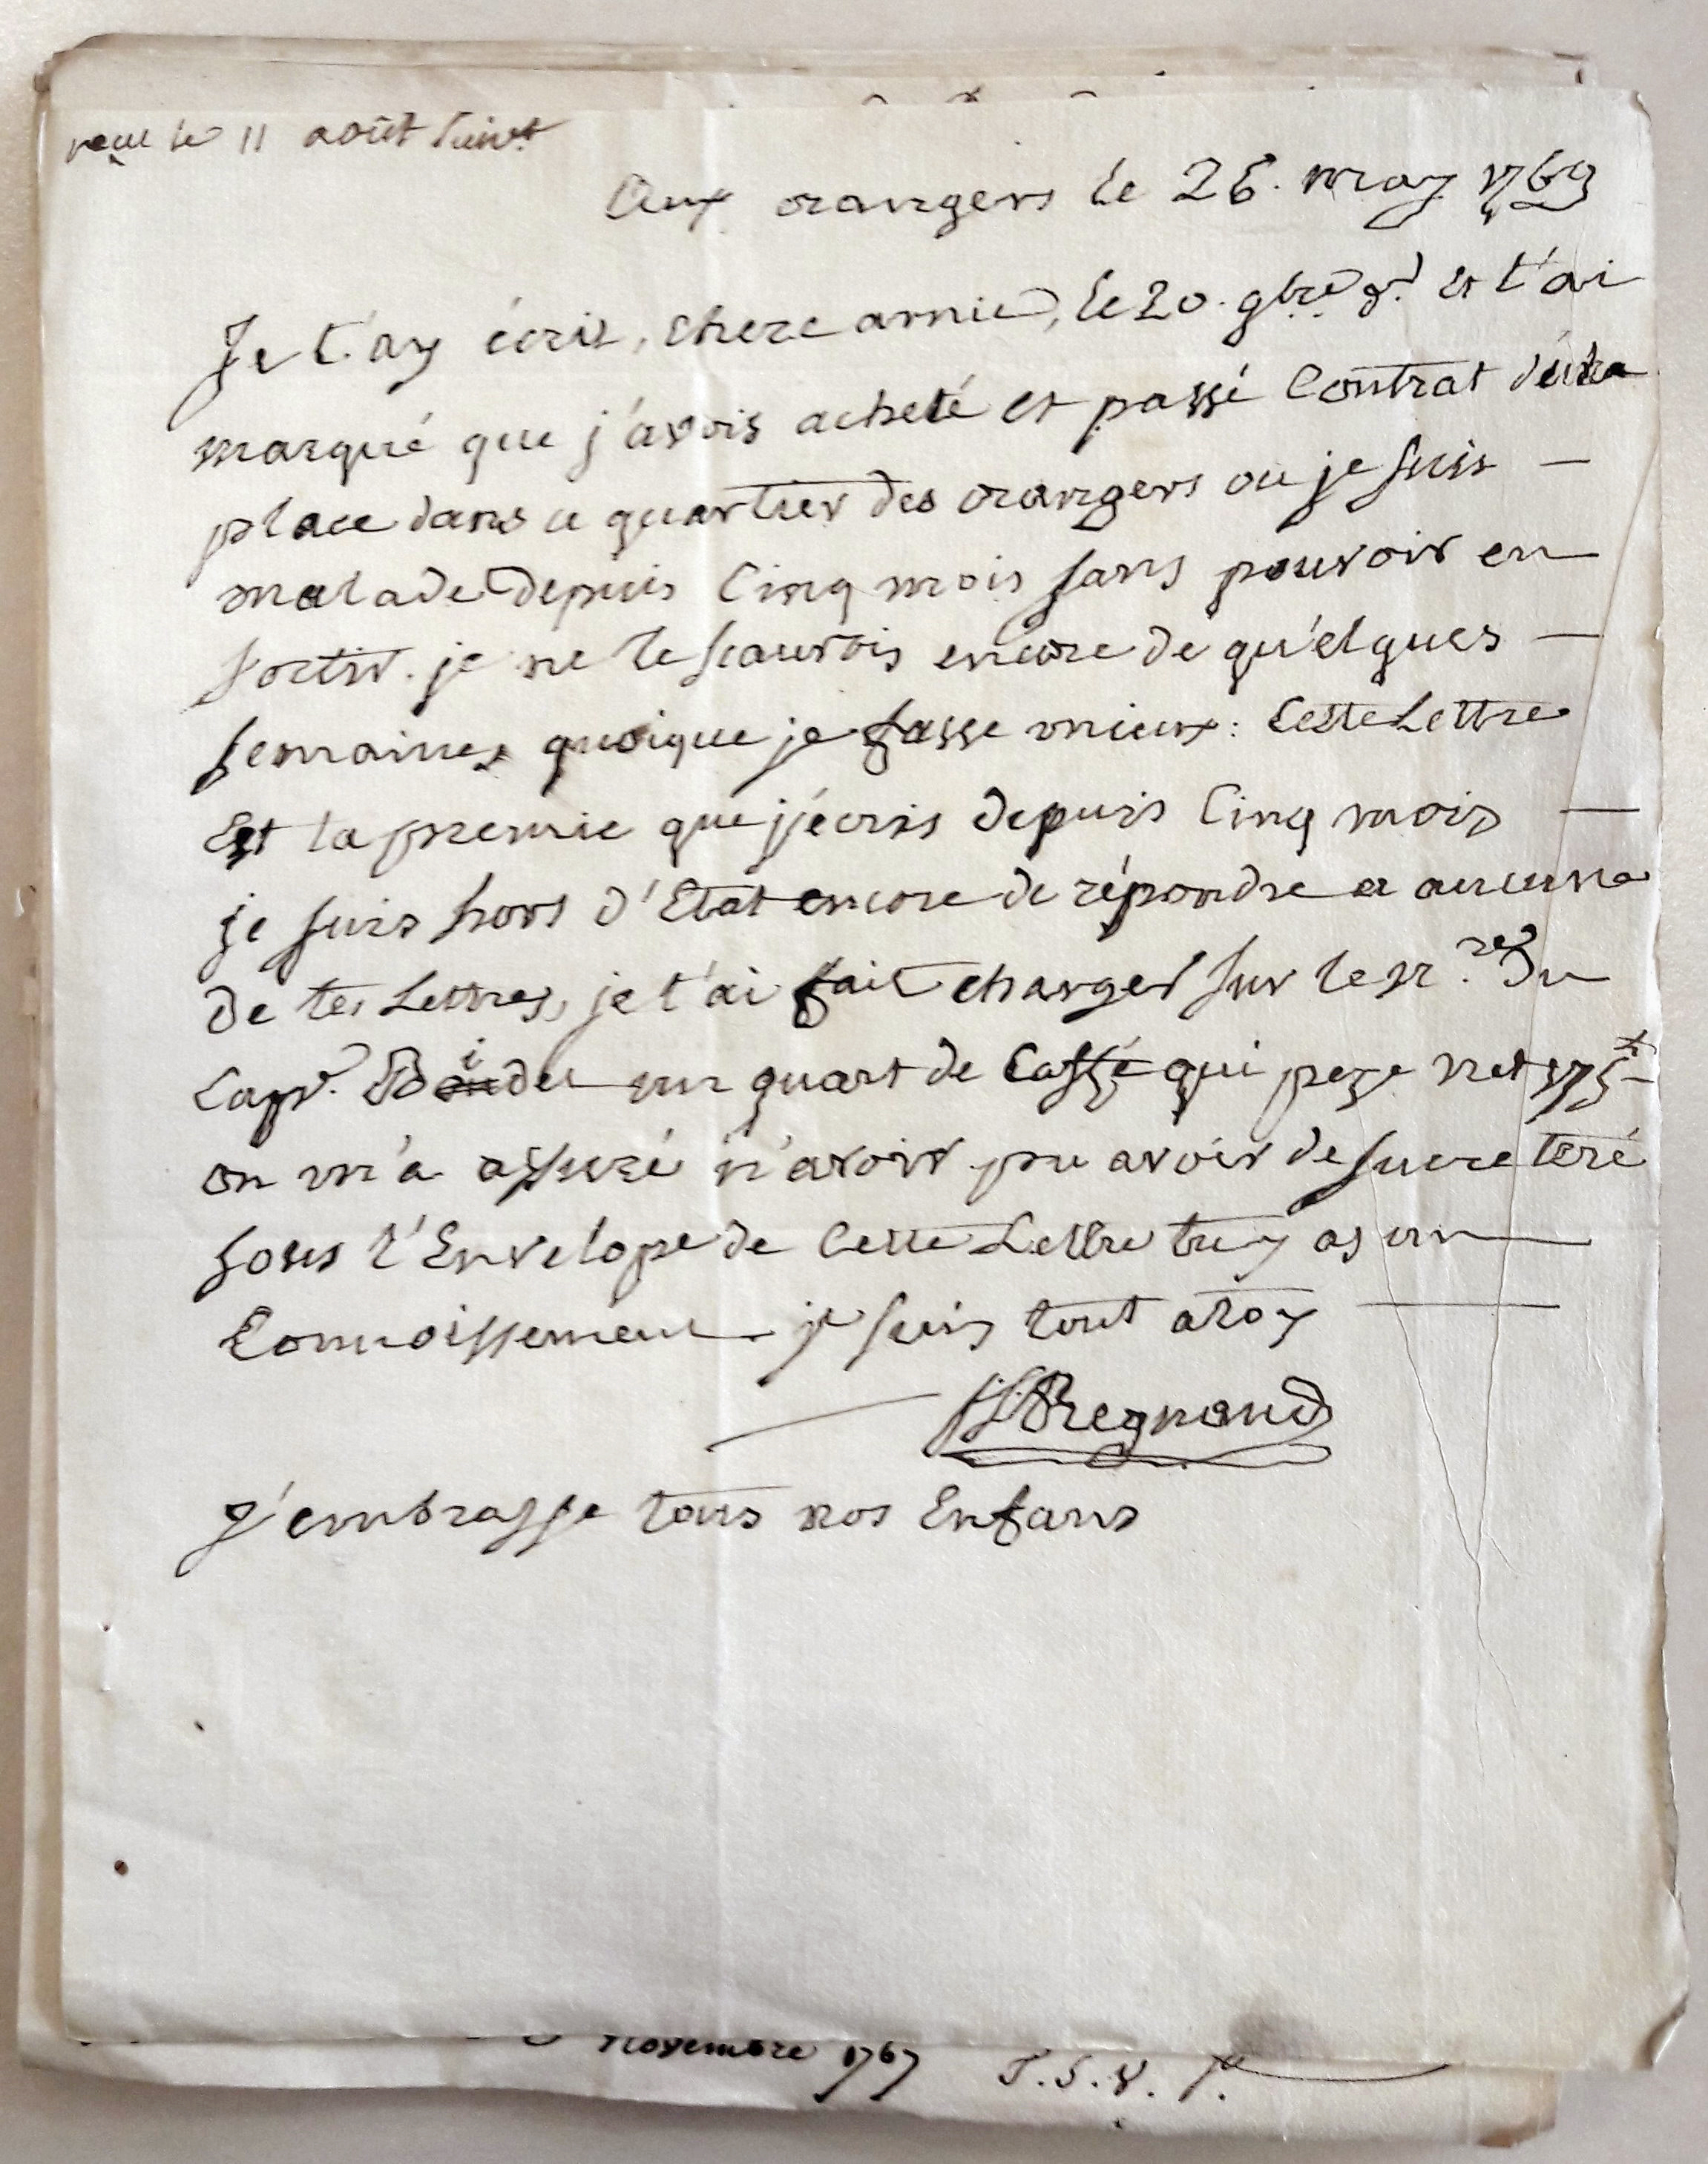 reçu le 11 août suivt
Aux orangers le 26. may 1769
Je t'ay écrit, chere amie, le 20. 9bre dr. et t'ai
marqué que j'avois acheté et passé Contrat d'une
place dans ce quartier des orangers ou je suis —
malade depuis Cinq mois sans pouvoir en
sortir. je ne le scaurois encore de quelques —
semaines quoique je fasse mieux: Cette Lettre
Est la premie que j'écris depuis Cinq mois —
je suis hors d'Etat encore de répondre a aucune
de tes Lettres, je t'ai fait charger sur le n.re du
Capne. un quart de Caffé qui peze net 175 tt
on m'a assuré n'avoir pu avoir de sucre teré
sous l'Envelope de Cette Lettre tu y as un
Connoissement je suis tout a toy
Regnaud
J'embrasse tous nos Enfans
novembre 1767 T.S.V.P.